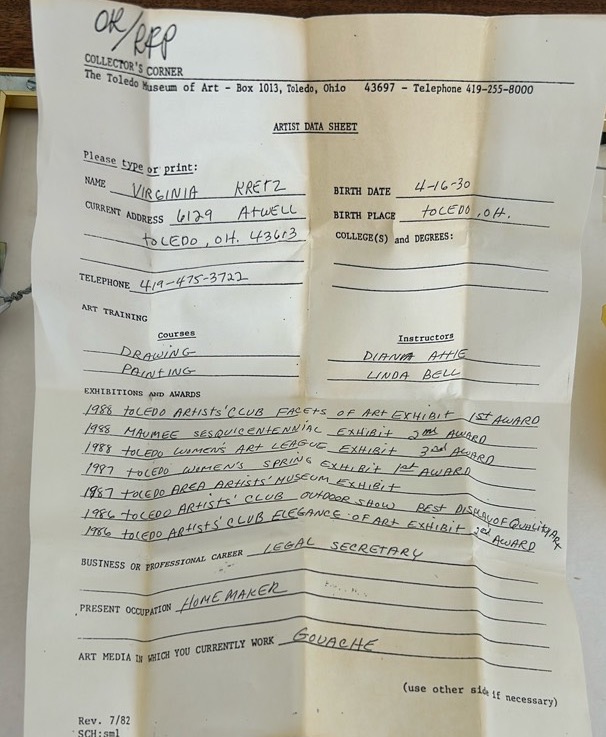 OK/RRP
COLLECTOR'S CORNER
The Toledo Museum of Art - Box 1013, Toledo, Ohio 43697 - Telephone 419-255-8000
ARTIST DATA SHEET
Please type or print:
NAME VIRGINIA KRETZ
BIRTH DATE 4-16-30
CURRENT ADDRESS 6129 ATWELL
BIRTH PLACE TOLEDO, OH.
TOLEDO, OH. 43613
COLLEGE(S) and DEGREES:
TELEPHONE 419-475-3722
ART TRAINING
Courses Instructors
DRAWING DIANA ATTIE
PAINTING LINDA BELL
EXHIBITIONS AND AWARDS
1988 TOLEDO ARTISTS' CLUB FACETS OF ART EXHIBIT 1ST AWARD
1988 MAUMEE SESQUICENTENNIAL EXHIBIT 2nd AWARD
1988 TOLEDO WOMEN'S ART LEAGUE EXHIBIT AWARD
1987 TOLEDO WOMEN'S SPRING EXHIBIT 1ST AWARD
1987 TOLEDO AREA ARTISTS' MUSEUM EXHIBIT
1986 TOLEDO ARTISTS' CLUB OUTDOOR SHOW BEST DISPLAY OF QUALITY ART
1986 TOLEDO ARTISTS' CLUB ELEGANCE OF ART EXHIBIT AWARD
BUSINESS OR PROFESSIONAL CAREER LEGAL SECRETARY
PRESENT OCCUPATION HOMEMAKER
ART MEDIA IN WHICH YOU CURRENTLY WORK GOUACHE
(use other side if necessary)
Rev. 7/82
SCH:sml